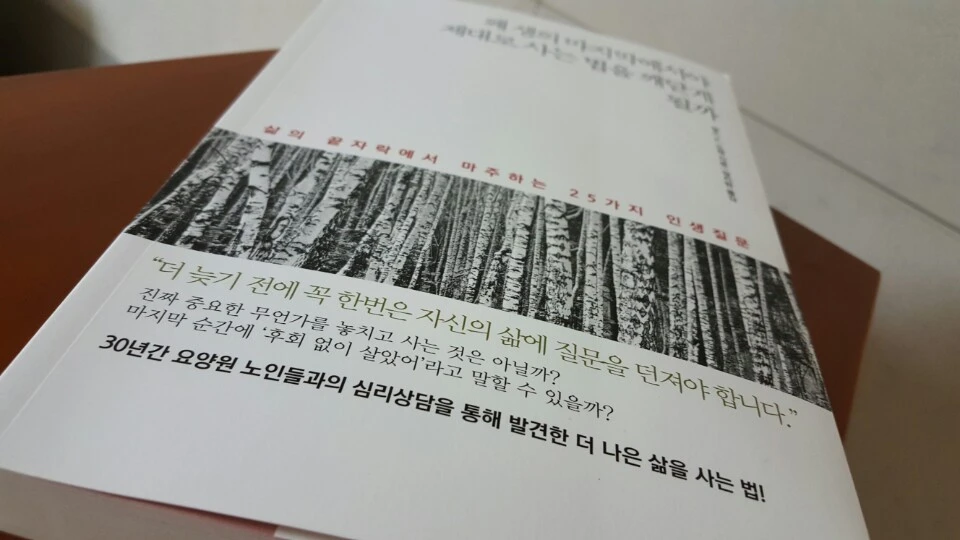 왜 생의 마지막에서야
제대로 사는 법을 깨닫게
될까
삶의 끝자락에서 마주하는 25가지 인생질문
“더 늦기 전에 꼭 한번은 자신의 삶에 질문을 던져야 합니다.”
진짜 중요한 무언가를 놓치고 사는 것은 아닐까?
마지막 순간에 ‘후회 없이 살았어’라고 말할 수 있을까?
30년간 요양원 노인들과의 심리상담을 통해 발견한 더 나은 삶을 사는 법!